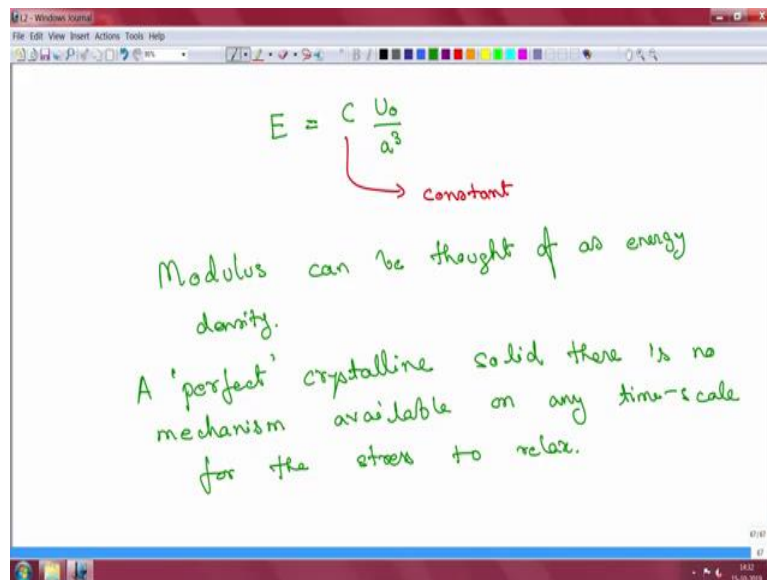 L2 - Windows Journal
File Edit View Insert Actions Tools Help
E = C U₀/a³
constant
Modulus can be thought of as energy
density.
A 'perfect' crystalline solid there is no
mechanism available on any time-scale
for the stress to relax.
67/67
67
14:32